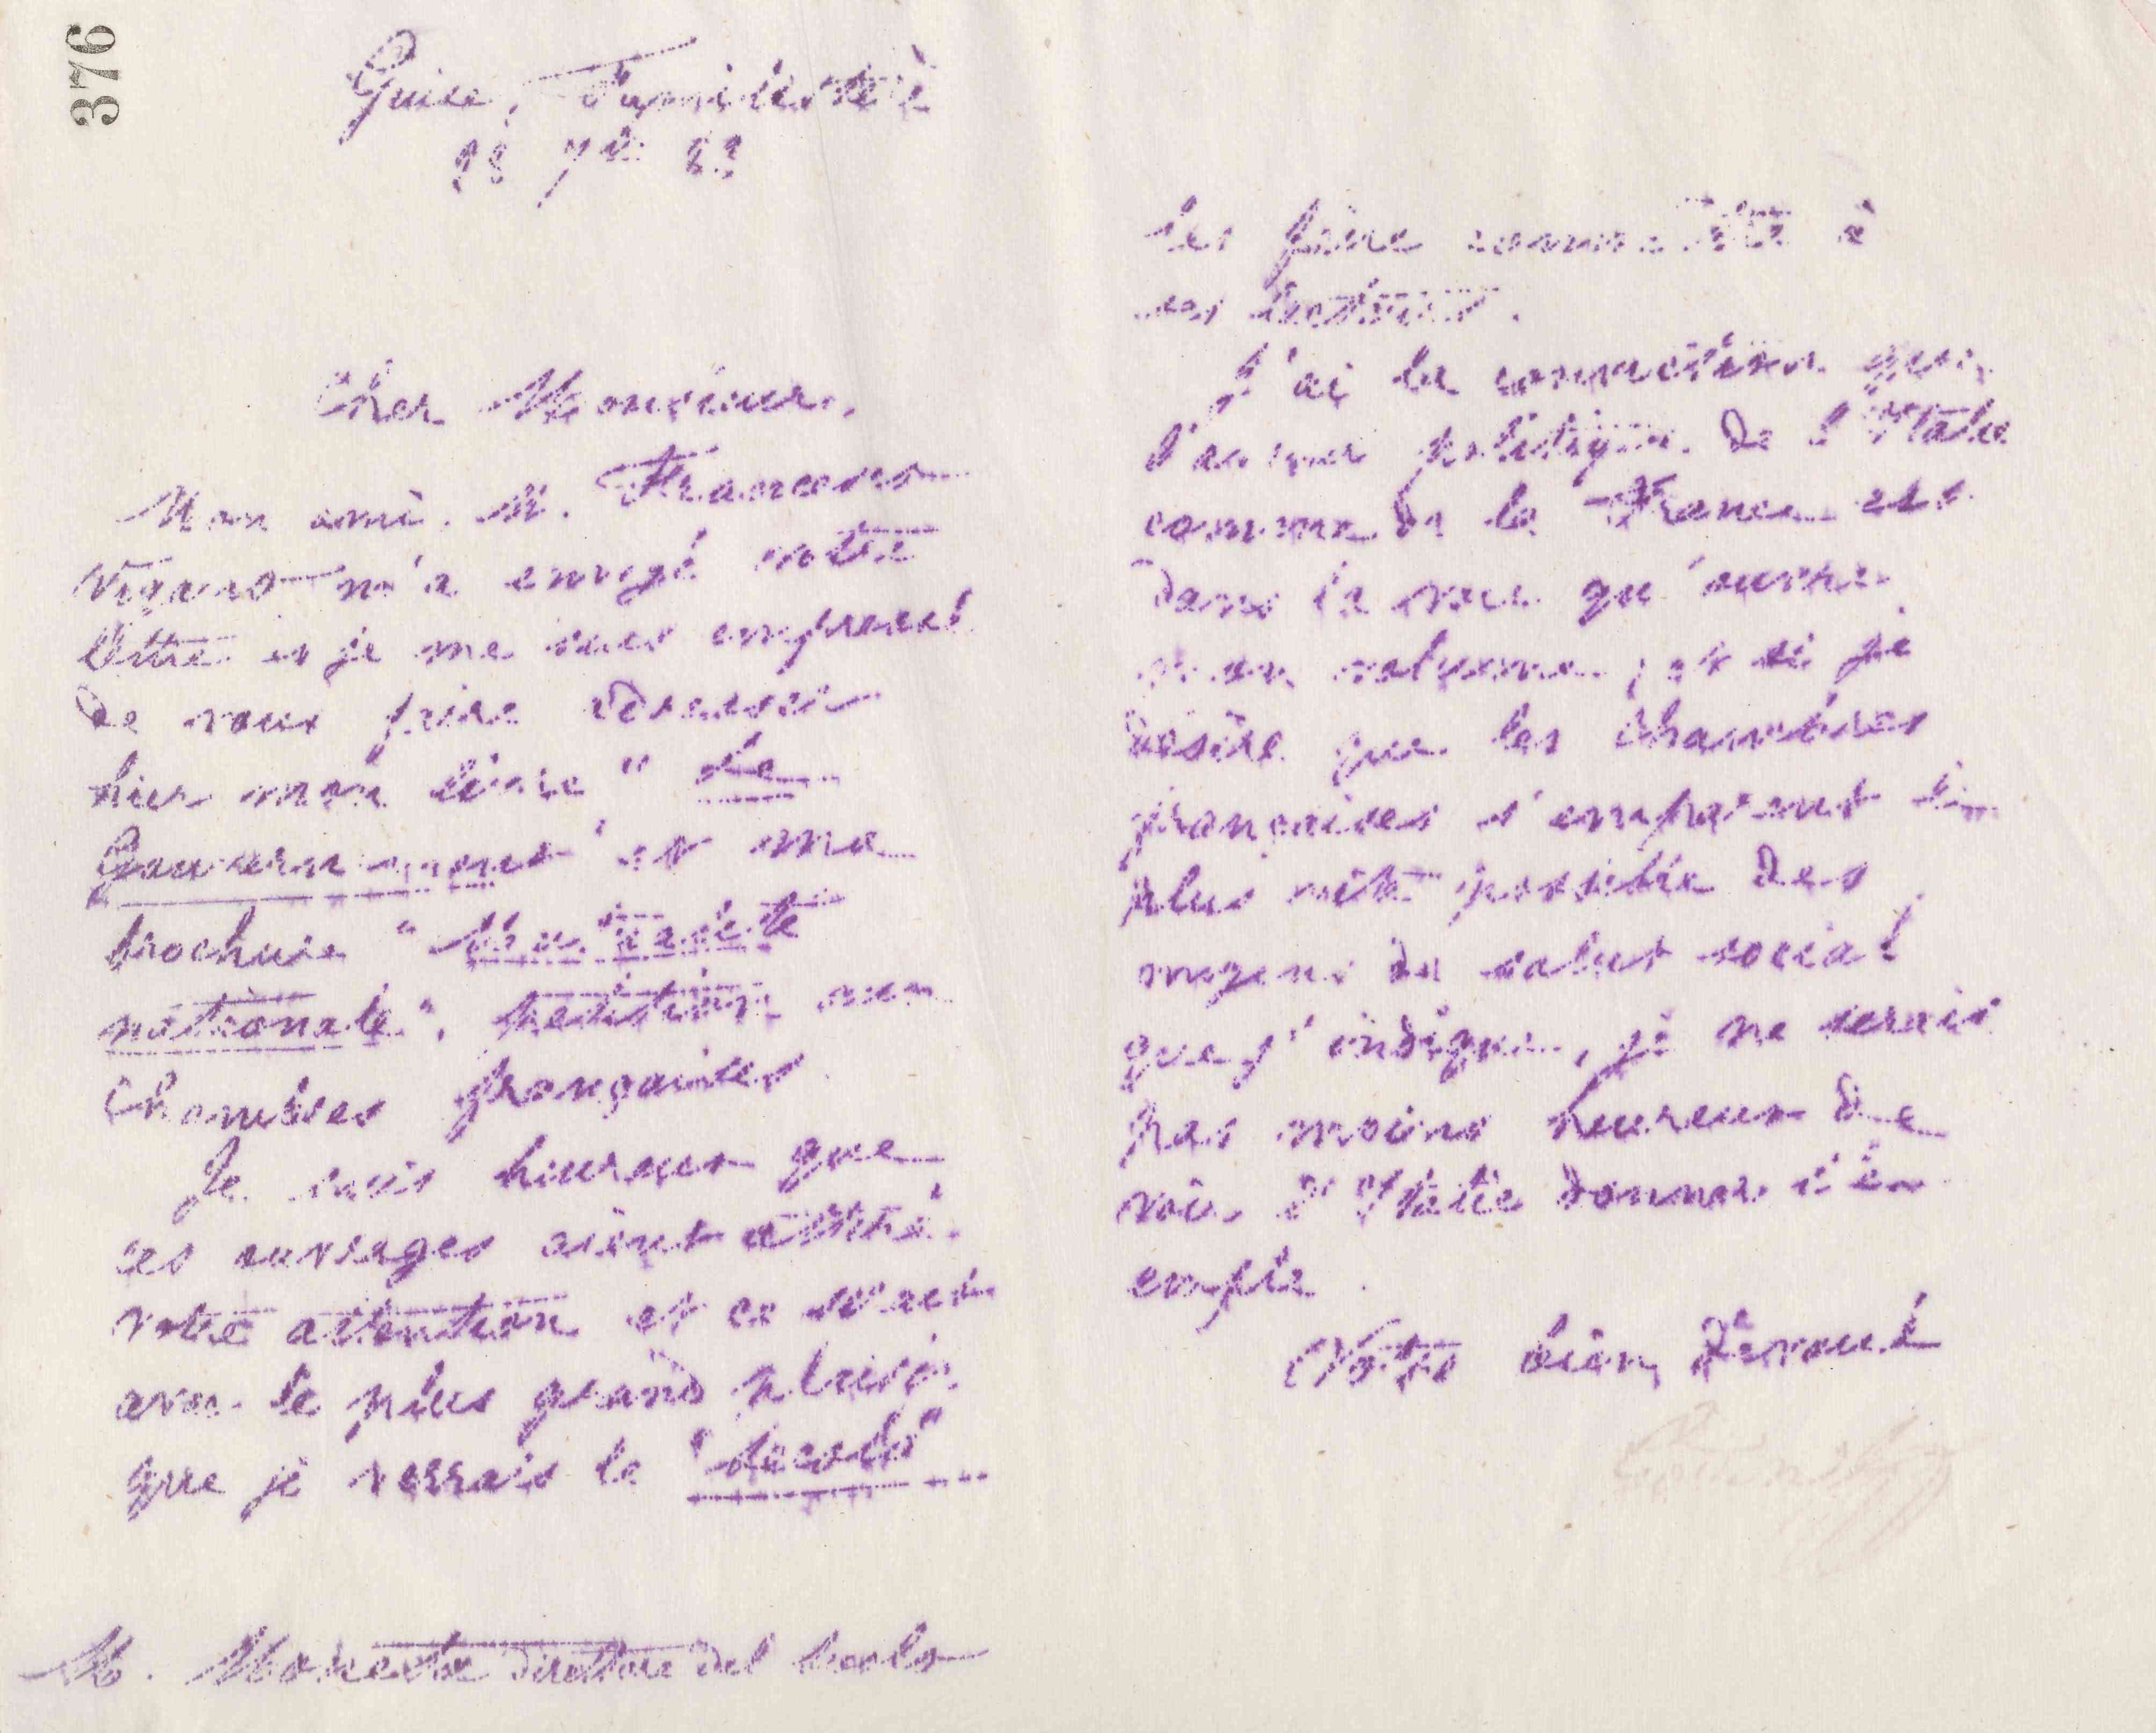 376
Guise, Familistère
28 7bre 83
Cher Monsieur,
Mon ami M. Francesco
Vigano m'a envoyé votre
lettre et je me suis empressé
de vous faire adresser
hier mon livre "Le
Gouvernement" et ma
brochure "Hérédité
nationale", pétition aux
Chambres françaises.
Je suis heureux que
ces ouvrages aient attiré
votre attention et ce serait
avec le plus grand plaisir
que je verrais le "Secolo"
M. Moneta direttore del Secolo
les faire connaître à
ses lecteurs.
J'ai la conviction que
l'avenir politique de l'Italie
comme de la France est
dans la voie qu'ouvre
volume ; et si je
désire que les Chambres
françaises s'emparent le
plus tôt possible des
moyens de salut social
que j'indique, je ne serais
pas moins heureux de
voir l'Italie donner l'ex
emple.
Votre bien dévoué